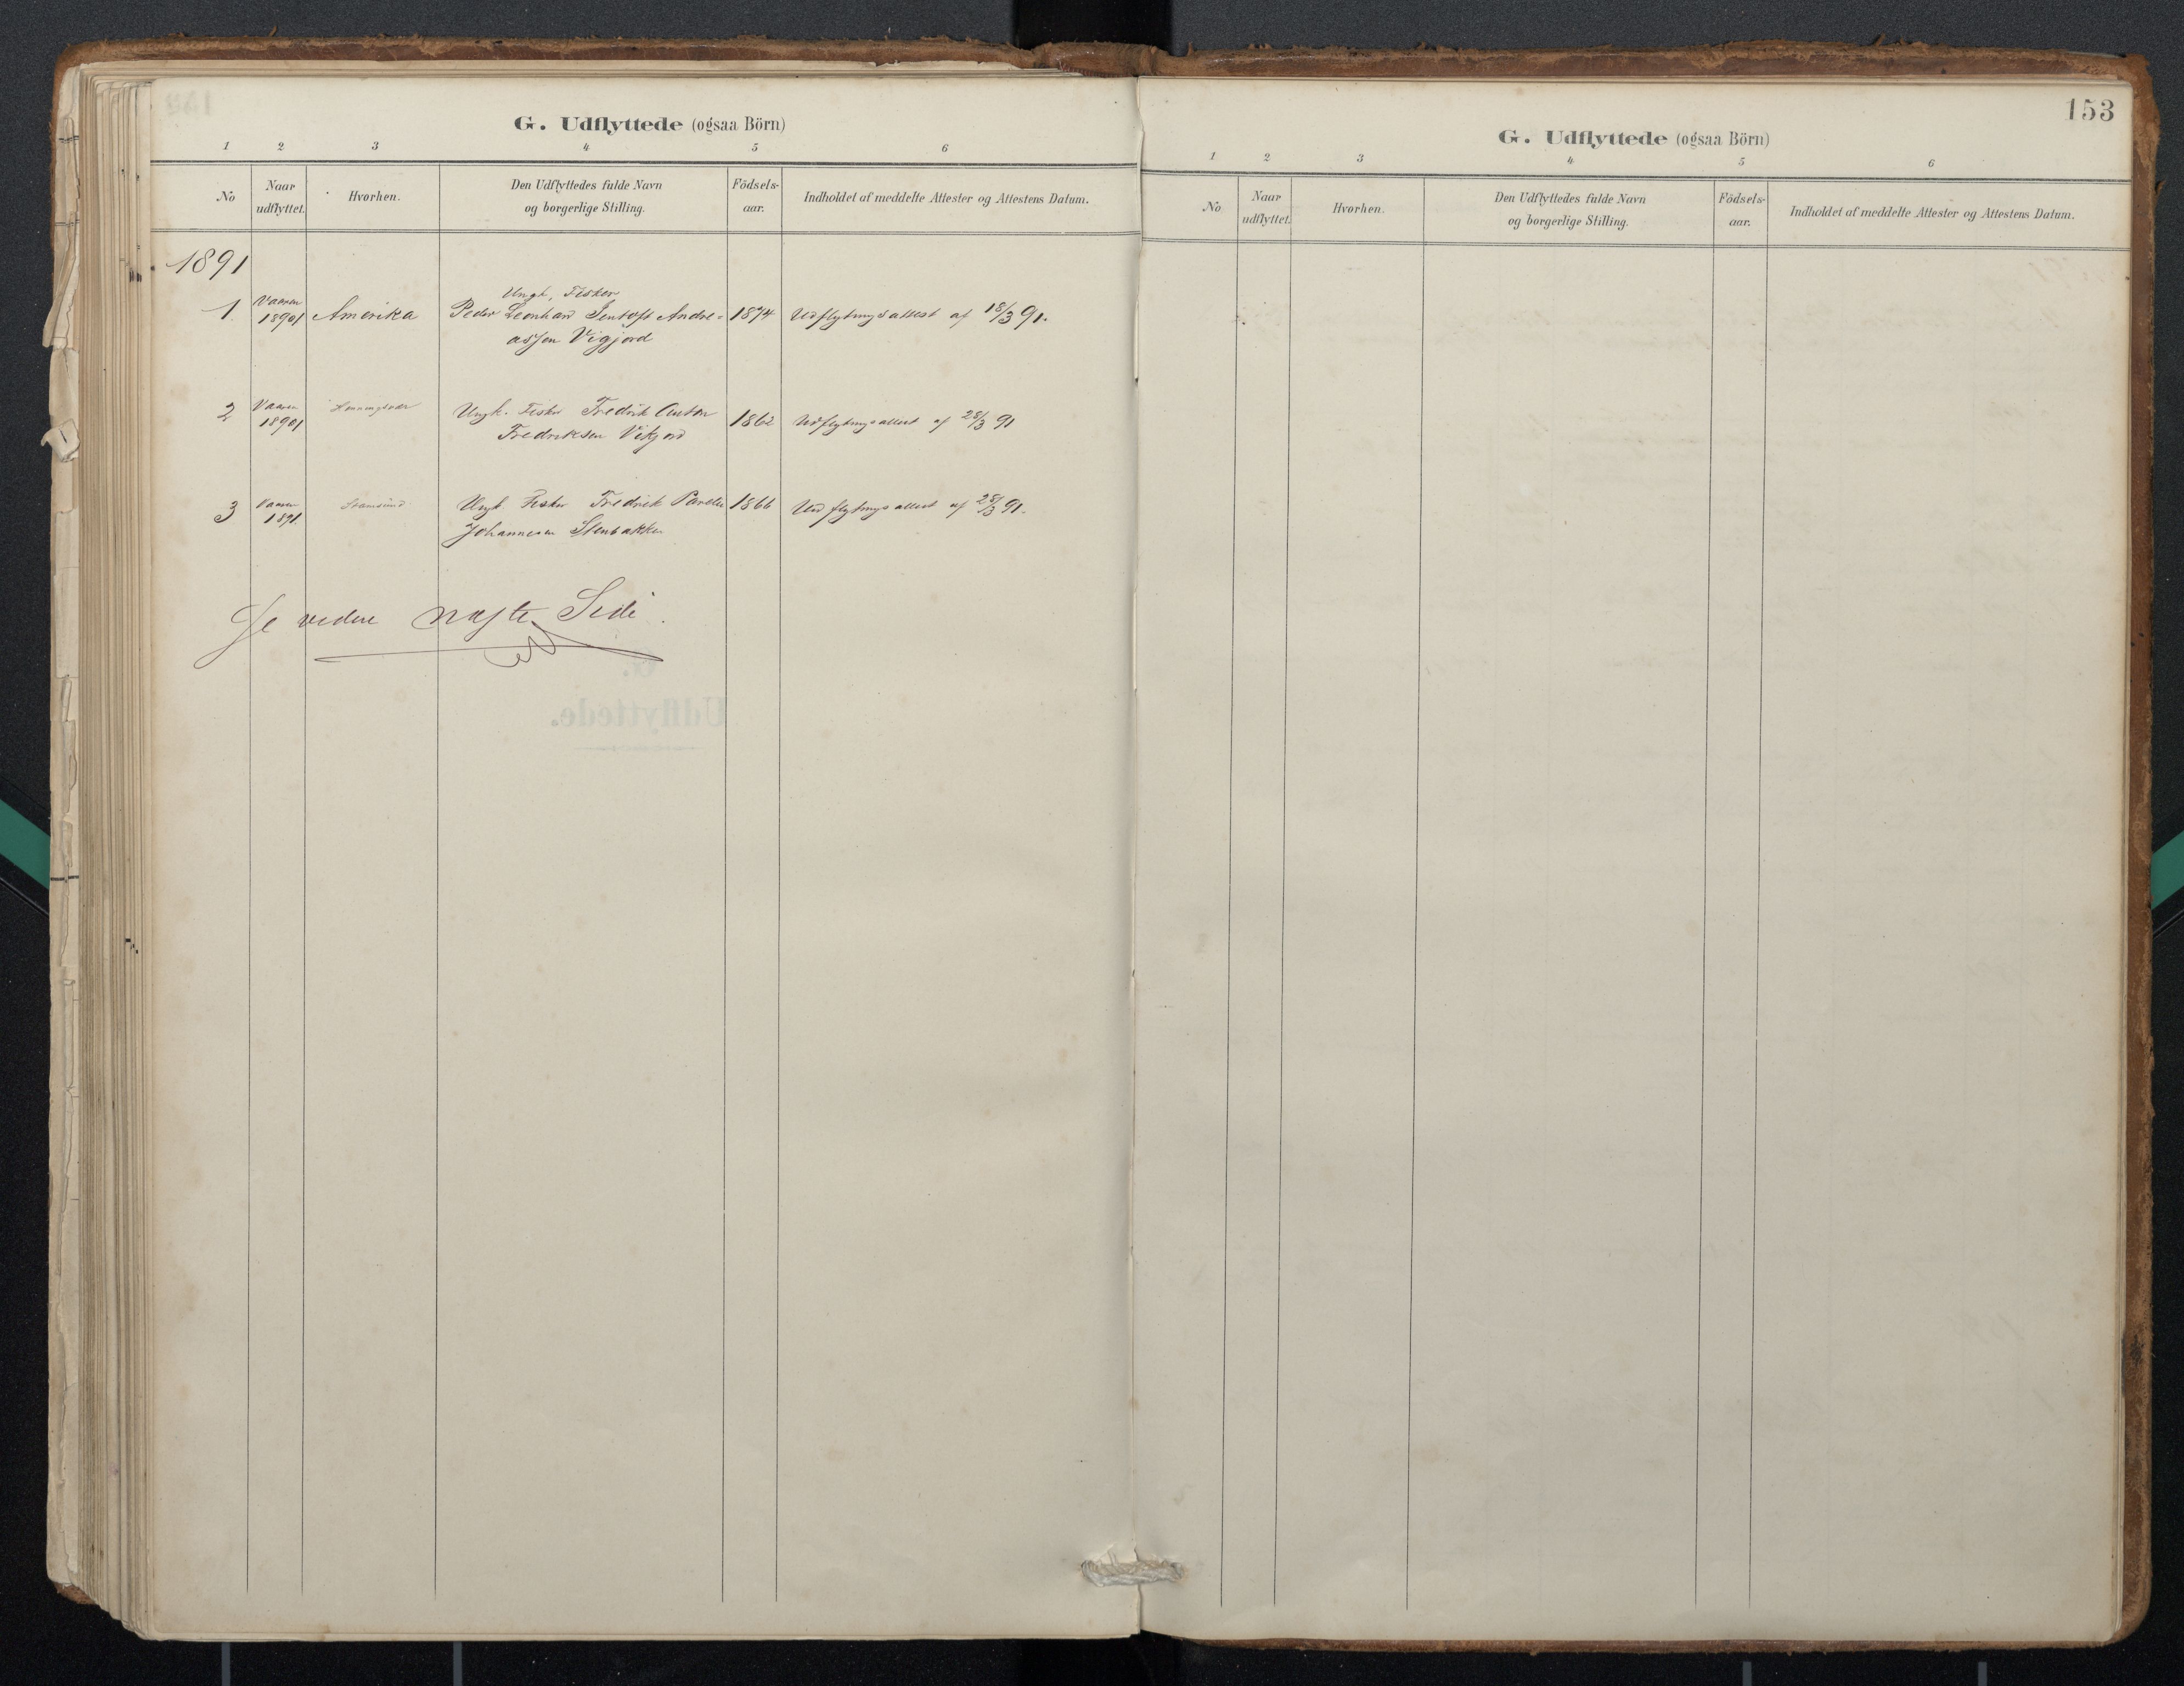 G. Udflyttede (ogsaa Börn)
1 2 3 4 5 6
No Naar udflyttet. Hvorhen. Den Udflyttedes fulde Navn og borgerlige Stilling. Födsels-aar. Indholdet af meddelte Attester og Attestens Datum.
1891
Ungk. Fisker
1. Vaaren 1891 Amerika Peder Leonhard Jentoft Andre- 1874 Udflytningsattest af 18/3 91.
assen Vigjord
2 Vaaren 1891 Henningsvær Ungk. Fisker Fredrik Anton 1862 Udflytningsattest af 28/3 91
Fredriksen Vikjord
3 Vaaren 1891. Stamsund Ungk. Fisker Fredrik 1866 Udflytningsattest af 28/3 91.
Johannesen Stenbakken
Se videre næste Side.
153
G. Udflyttede (ogsaa Börn)
1 2 3 4 5 6
No Naar udflyttet. Hvorhen. Den Udflyttedes fulde Navn og borgerlige Stilling. Födsels-aar. Indholdet af meddelte Attester og Attestens Datum.